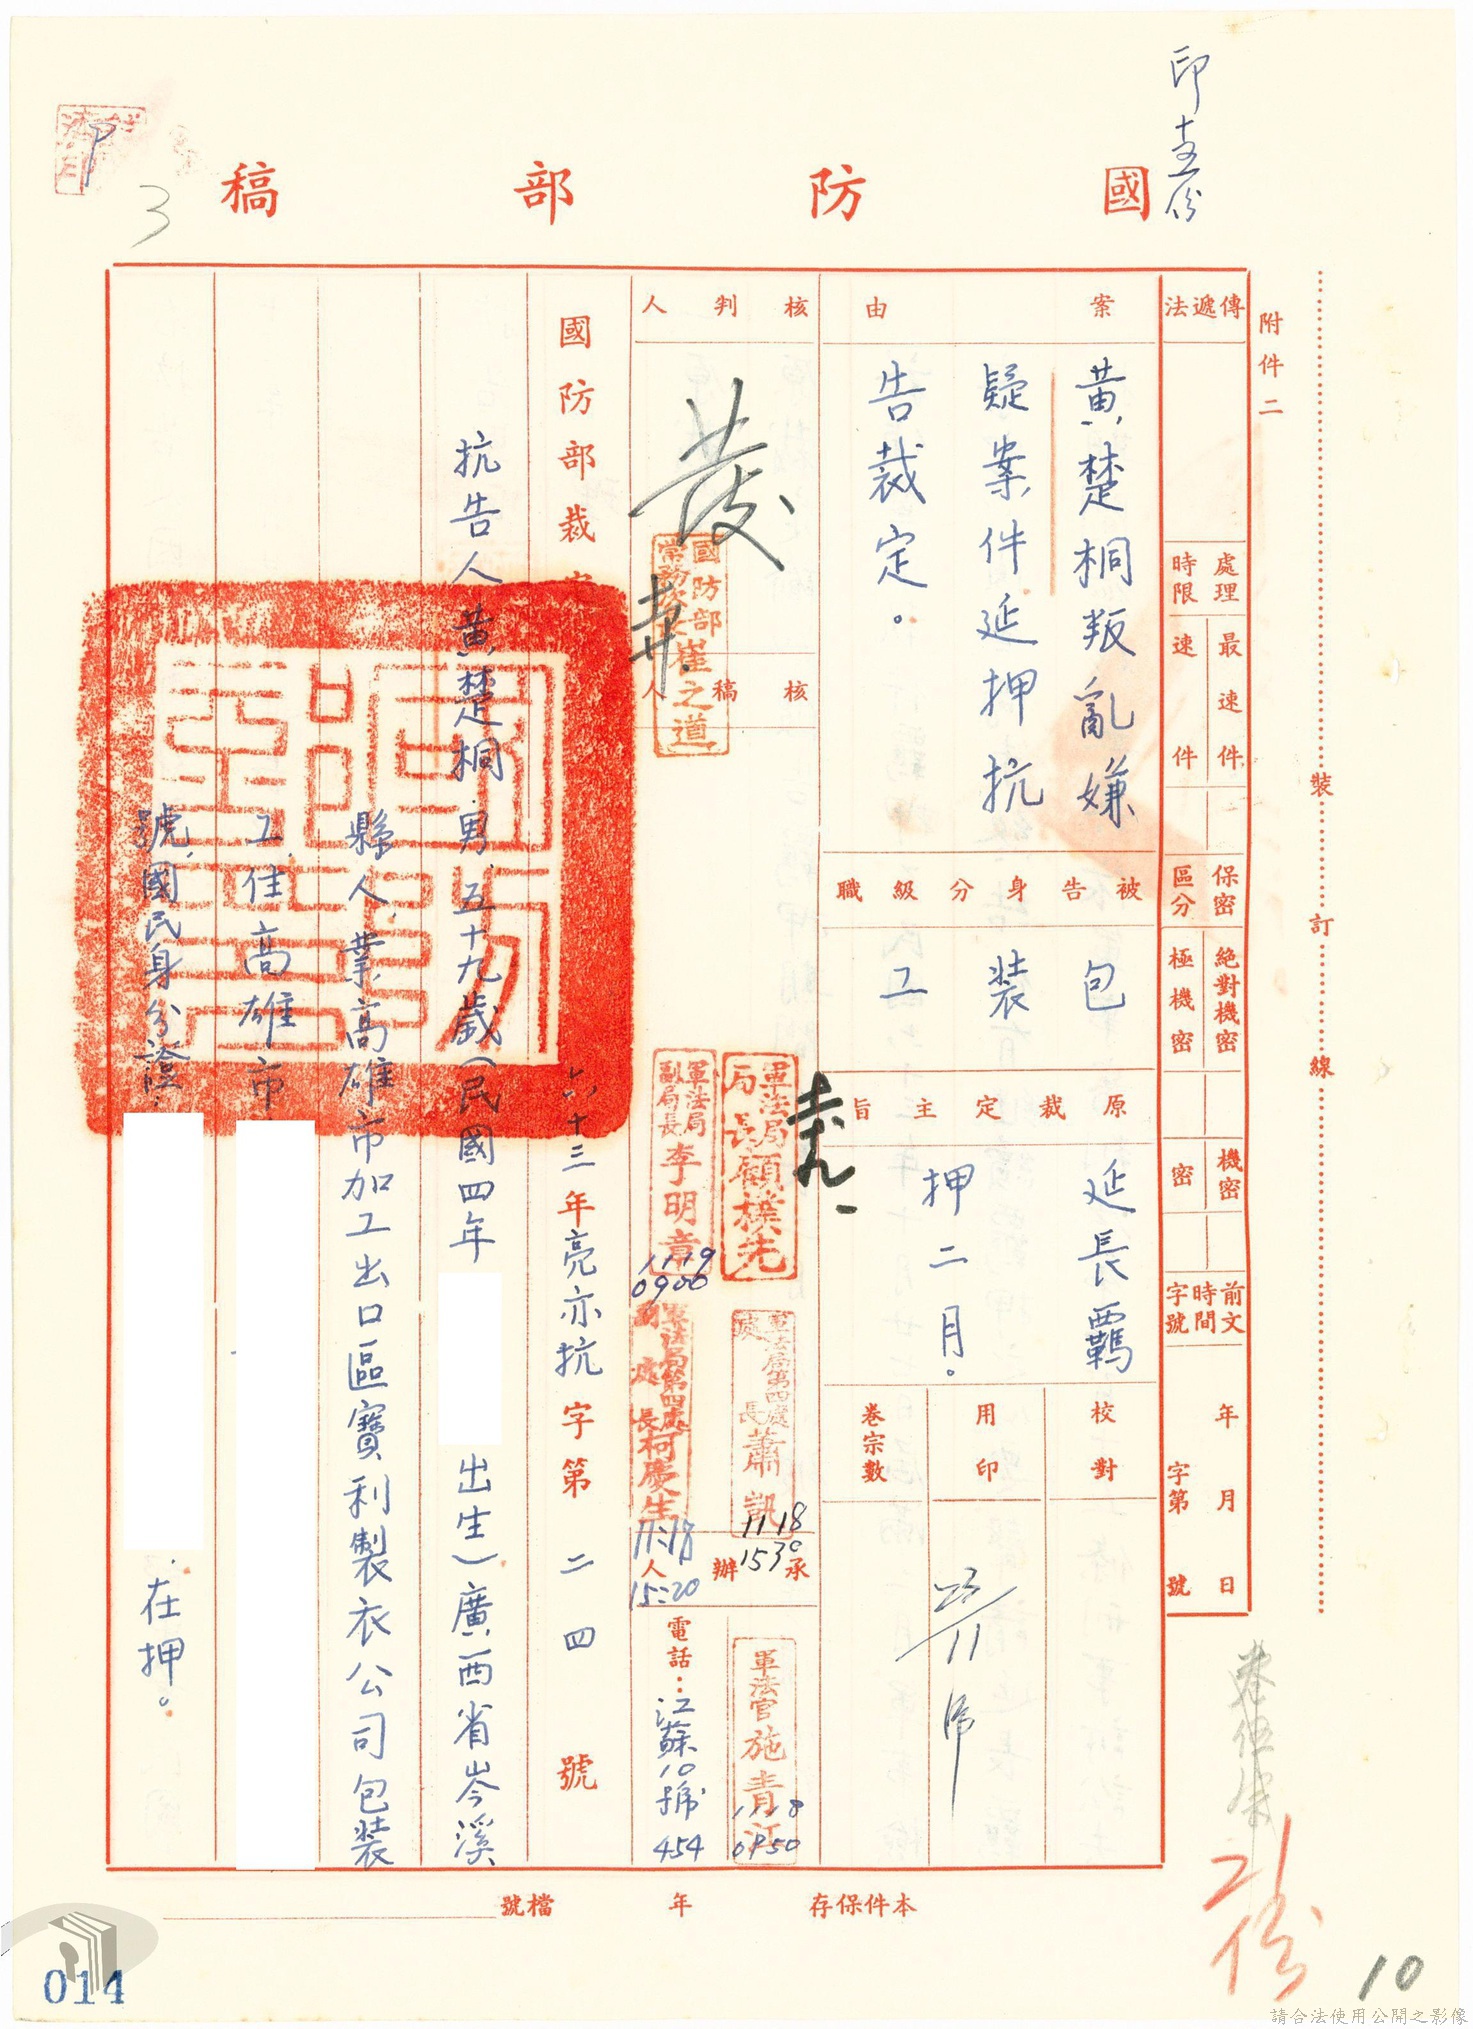 印十五份
國防部稿
3
附件二
裝訂線
傳遞法
處理時限
最速件
速件
保密區分
絕對機密
極機密
機密
密
前文時間字號
年月日
字第號
案由
黃楚桐叛亂嫌
疑案件延押抗
告裁定。
被告身分級職
包裝工
原裁定主旨
延長羈
押二月。
校對
用印
卷宗數
23/11
核判人
發
國防部
崔之道
核稿人
軍法局
局長顧樸先
軍法局
副局長李明章
1119
0900
軍法局第四處
處長蕭凱
1118
1530
軍法局第四處
副處長柯慶生
11:18
15:20
承辦人
軍法官施青江
1118
0950
電話:江蘇10號
454
國防部裁定
六十三年亮亦抗字第二四號
抗告人黃楚桐 男,五十九歲(民國四年
出生)廣西省岑溪
縣人,業高雄市加工出口區寶利製衣公司包裝
工,住高雄市
號,國民身分證:
,在押。
本件保存
年
檔號
二份
10
014
請合法使用公開之影像